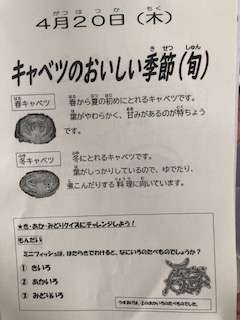 がつ はつか もく
4月20日(木)
き せつ しゅん
キャベツのおいしい季節(旬)
はる
春キャベツ
春から夏の初めにとれるキャベツです。
葉がやわらかく、甘みがあるのが特ちょう
です。
ふゆ
冬キャベツ
冬にとれるキャベツです。
葉がしっかりしているので、ゆでたり、
煮こんだりする料理に向いています。
★き・あか・みどりクイズにチャレンジしよう!
もんだい
ミニフィッシュは、はたらきでわけると、なにいろのたべものでしょうか?
① きいろ
② あかいろ
③ みどりいろ